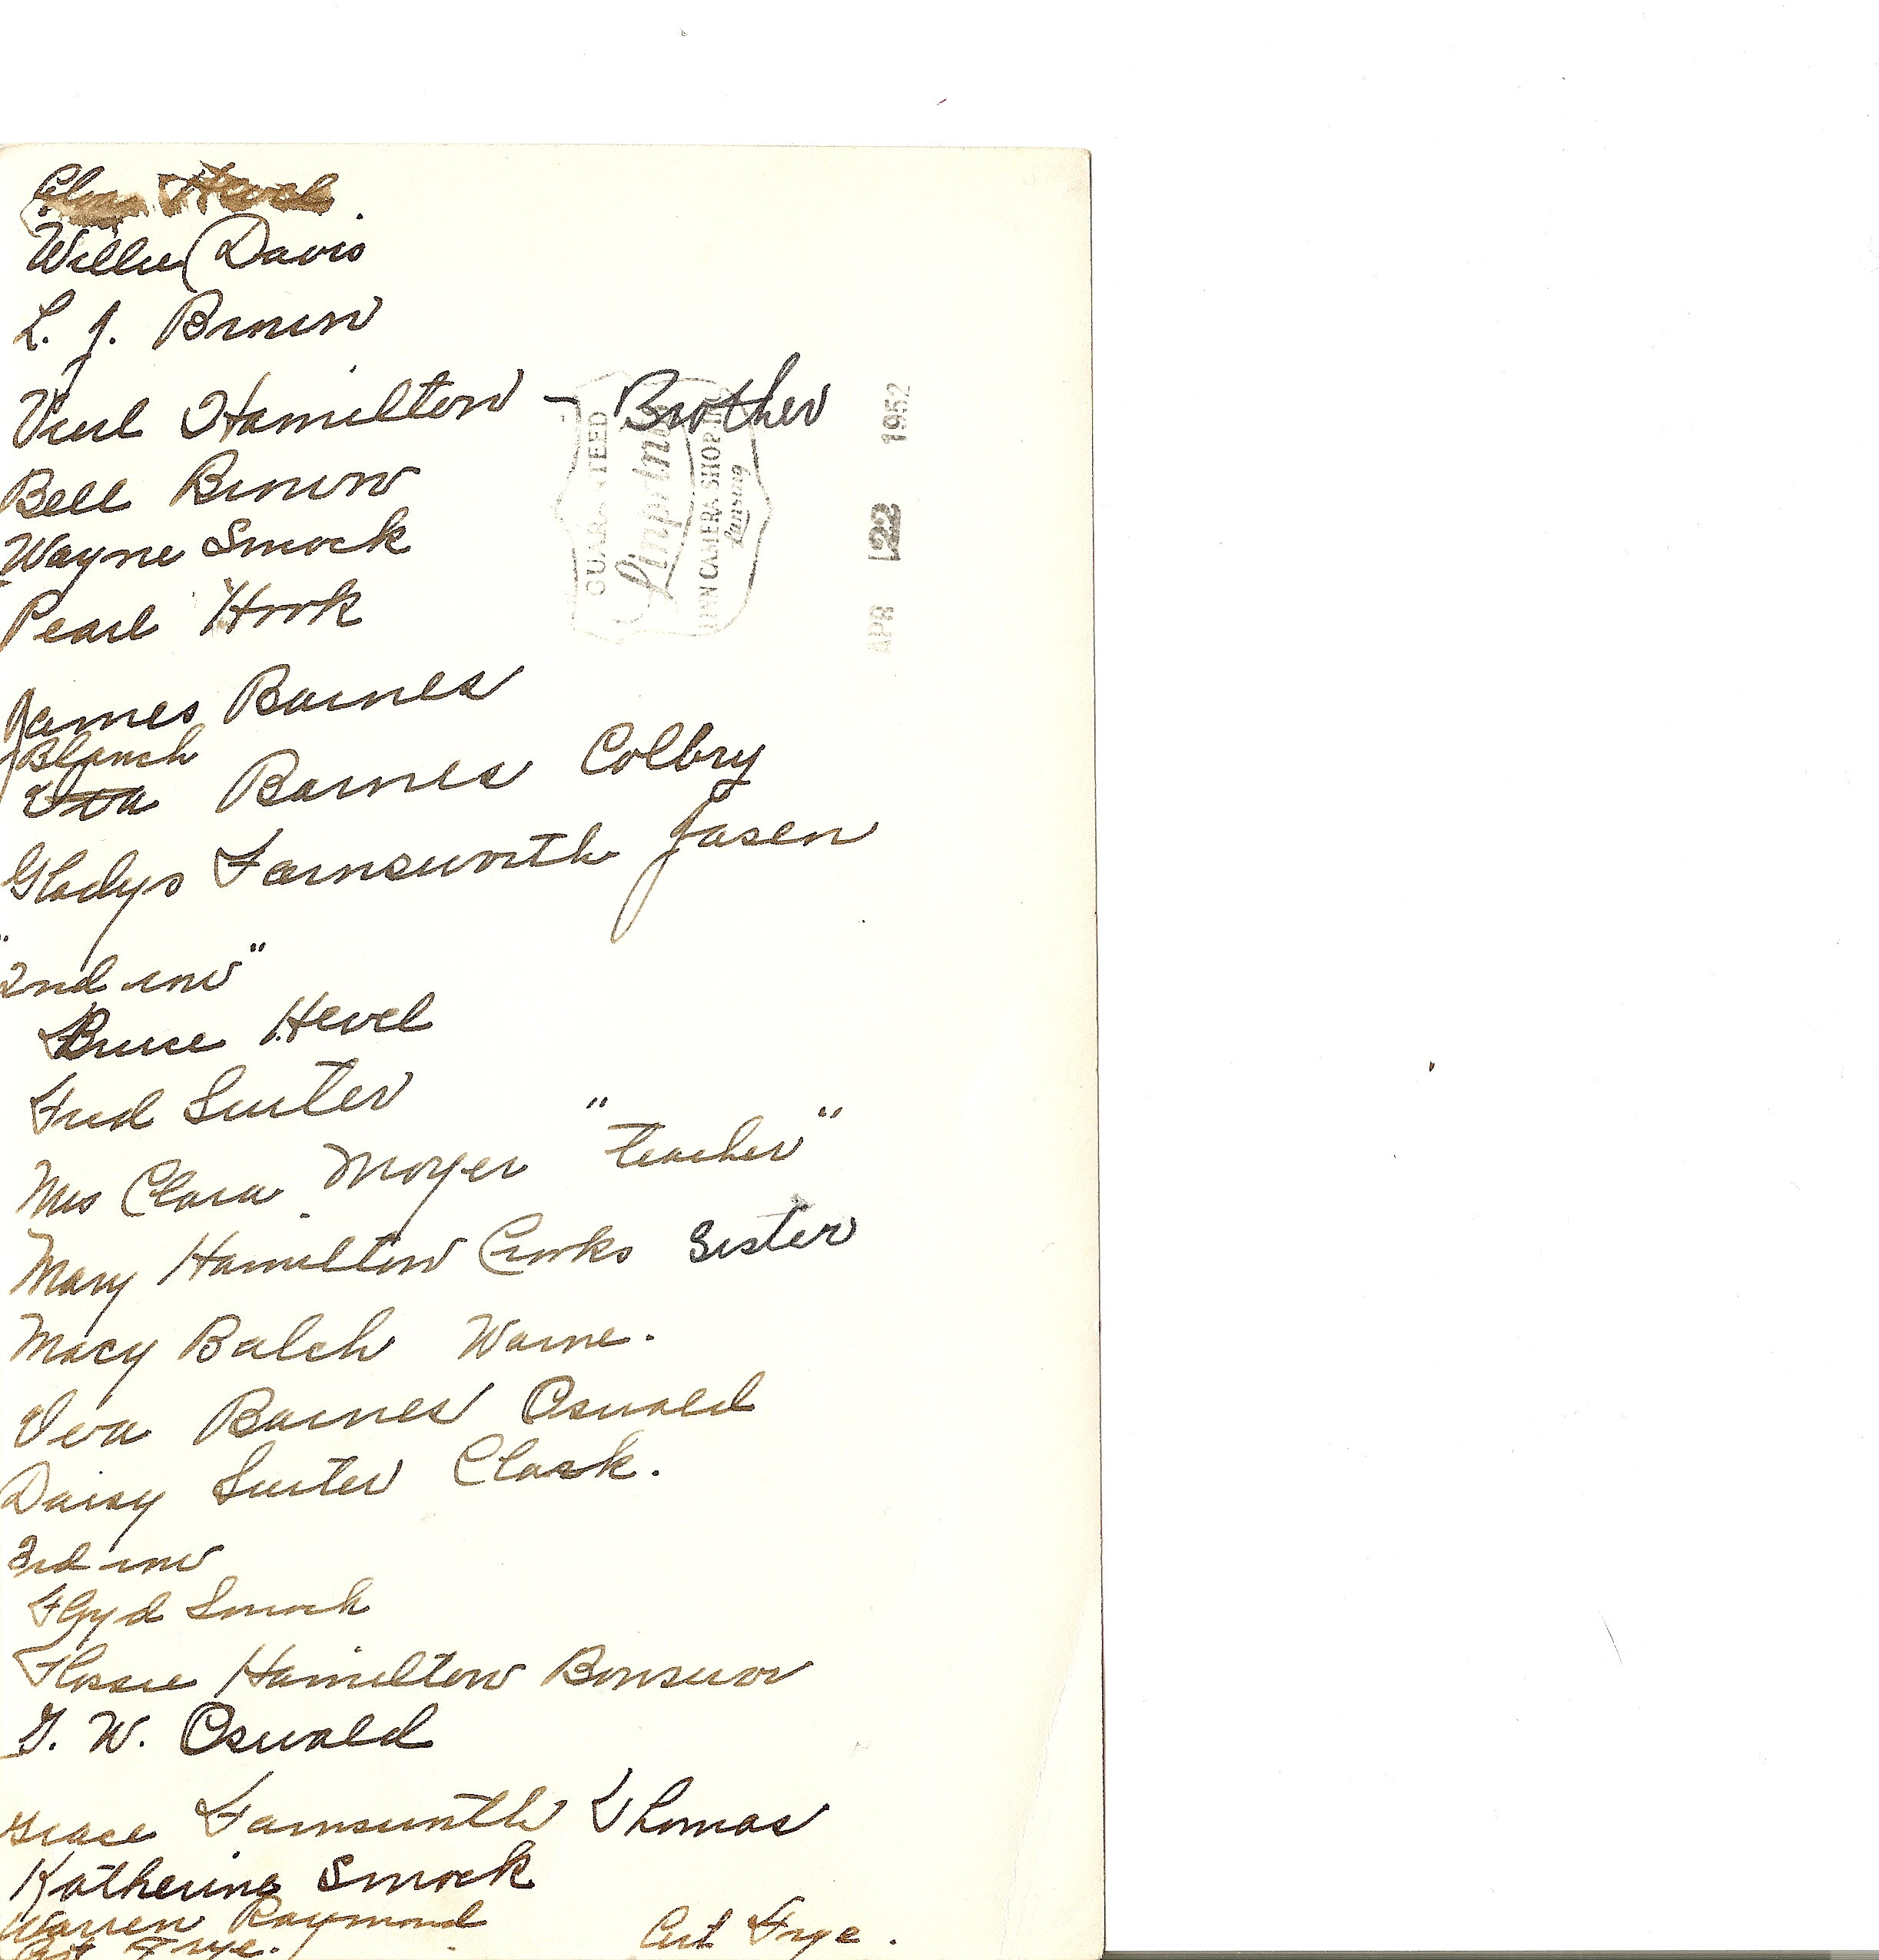 Willie Davis
L. J. Brown
Verl Hamilton - Brother
Bell Brown
Wayne Smock
Pearl Hook
James Barnes
Blanch
Eva Barnes Colbry
Gladys Farnsworth Jasen
"2nd row"
Bruce Hevel
Fred Suiter
Mrs Clara Moyer "teacher"
Mary Hamilton Crooks Sister
Macy Balch Warne.
Veva Barnes Oswald
Daisy Suiter Clark.
3rd row
Floyd Smock
Flossie Hamilton Bonsuor
G. W. Oswald
Grace Farnsworth Thomas
Katherine Smock
Warren Raymond
Art Frye. Art Frye.
GUARANTEED
Linprint
LINN CAMERA SHOP, INC.
Lansing
APR 22 1952